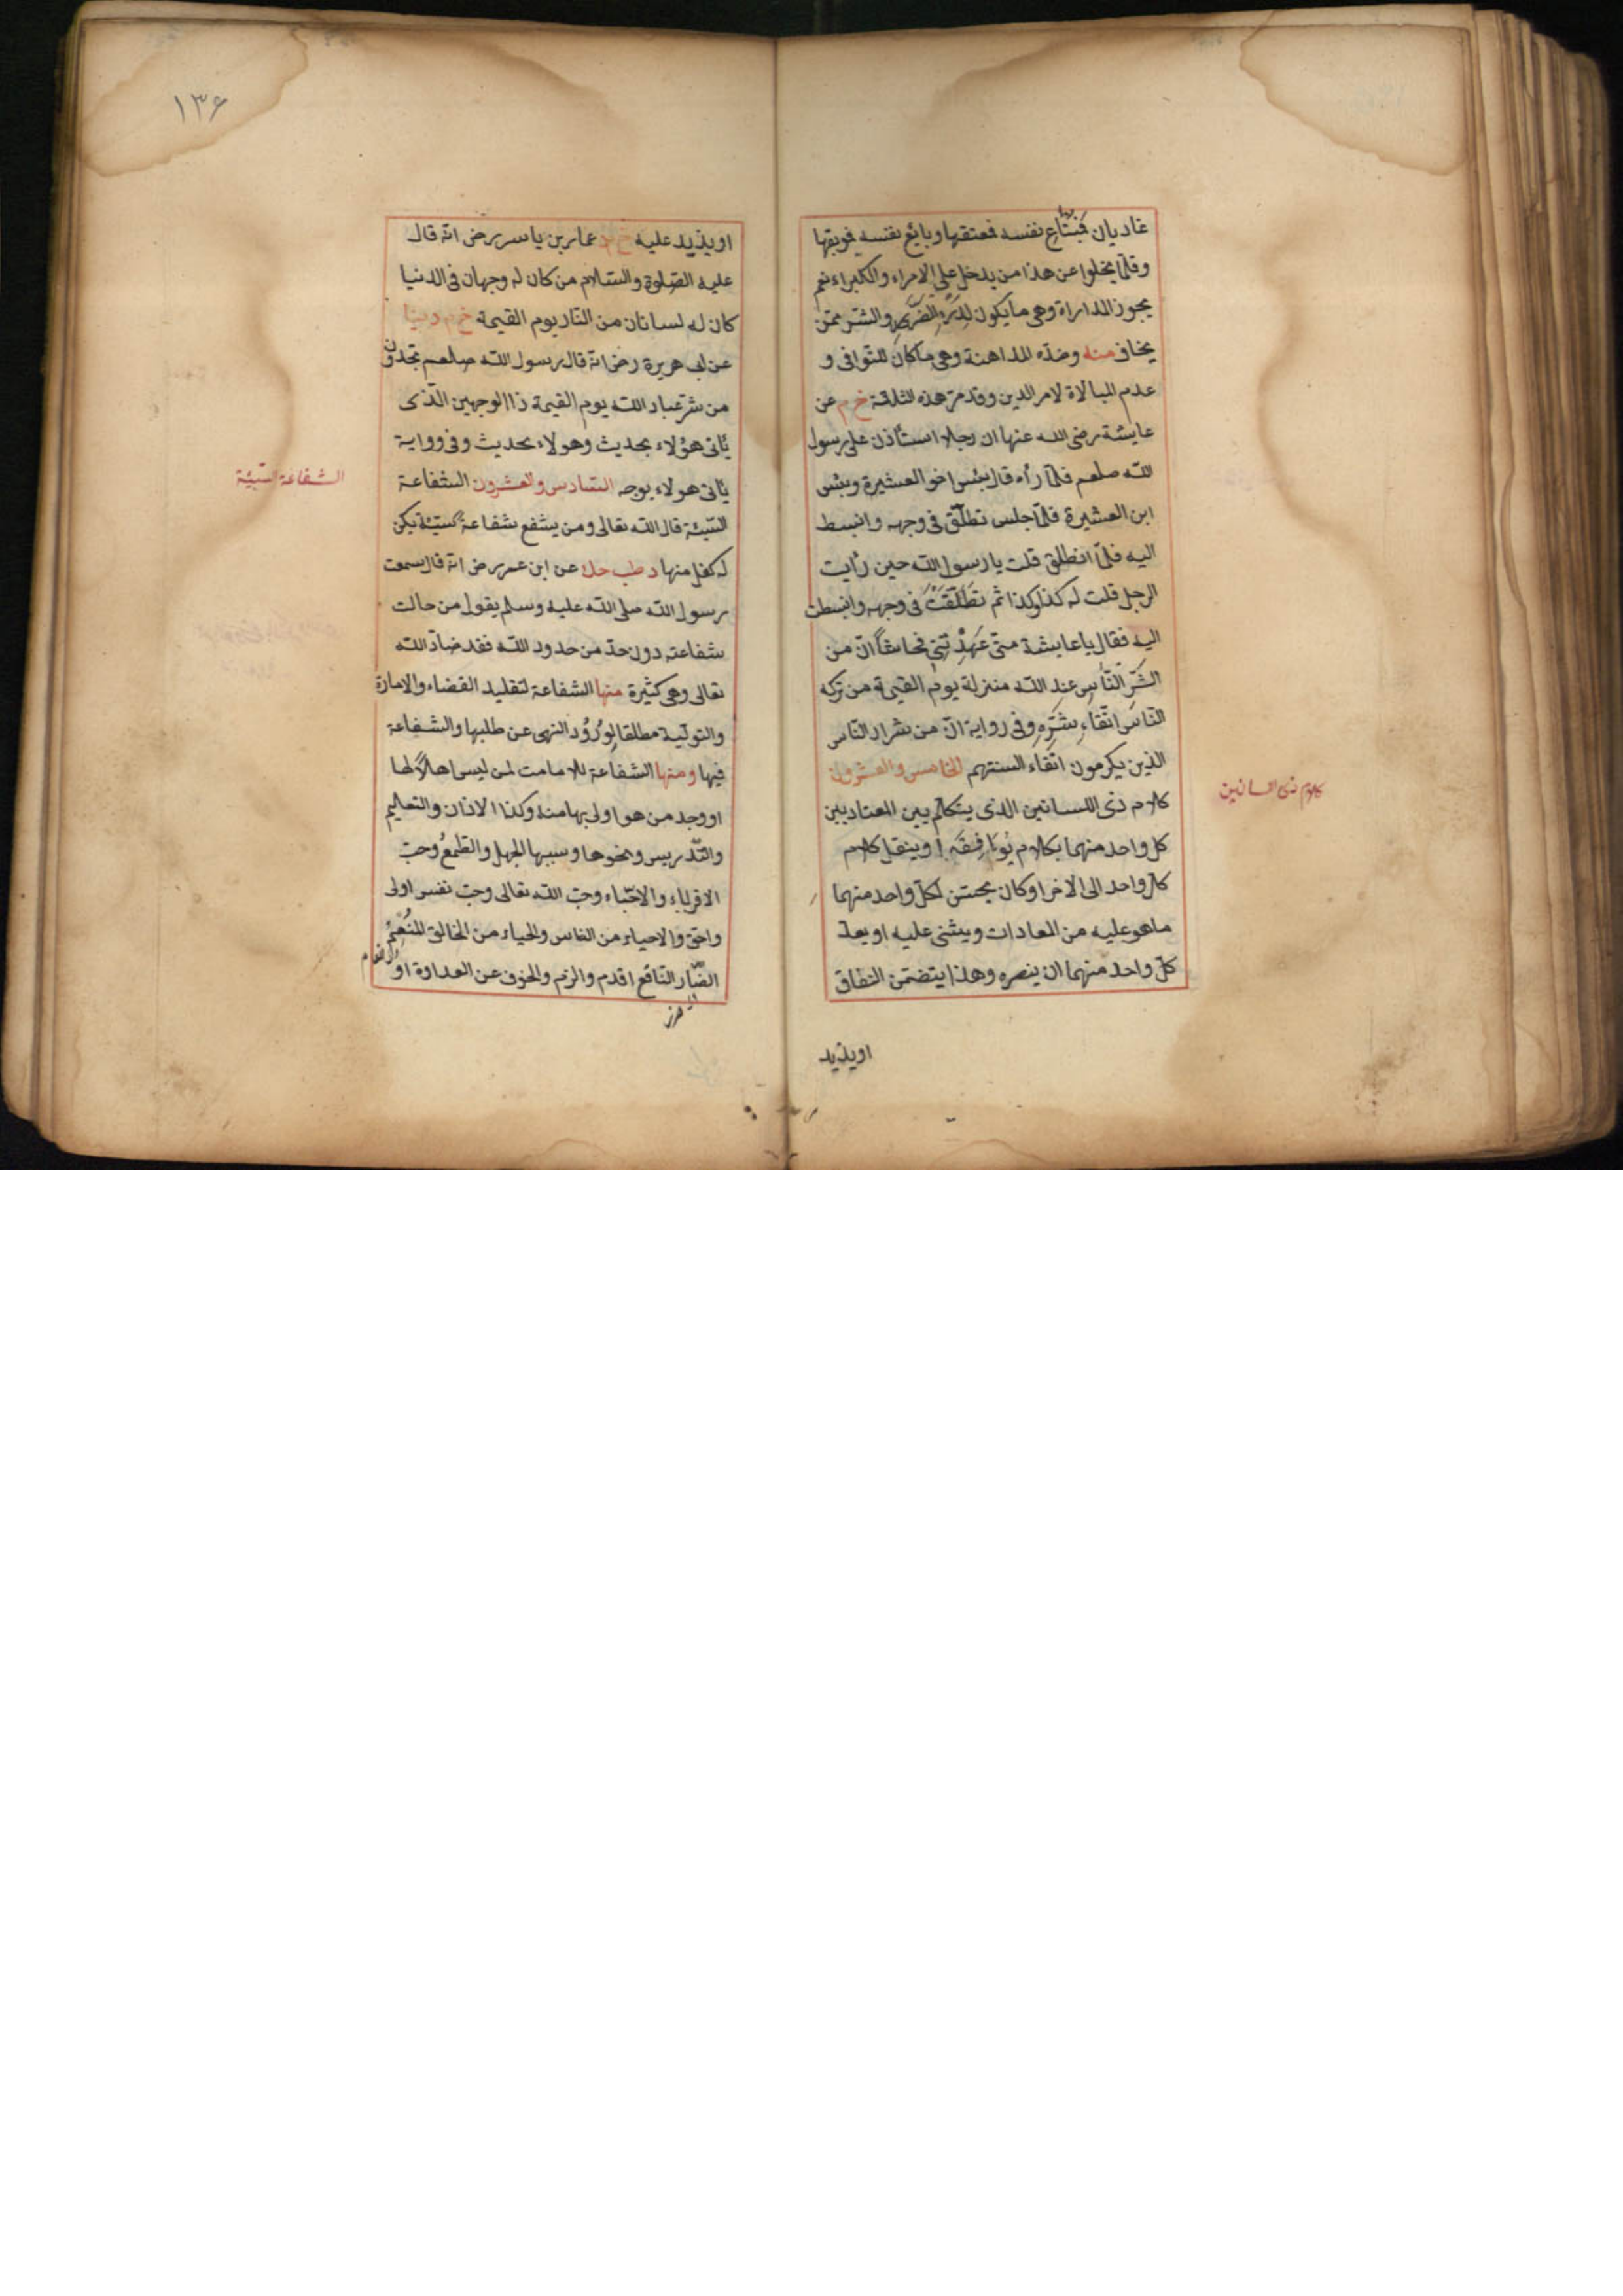 غاديان فمبتاع نفسه فمعتقها وبايع نفسه فموبقها
وقلّما يخلوا عن هذا من يدخل على الامراء والكبراء نعم
يجوز المداراة وهى ما يكون لدرء الضّرر والشّر ممّن
يخاف منه وضدّه المداهنة وهى ما كان للتوافى و
عدم المبالاة لامر الدين وقد مرّ هذه الثلاثة خ م عن
عايشة رضى الله عنها ان رجلا استأذن على رسول
الله صلعم فلمّا رأه قال بئس اخو العشيرة وبئس
ابن العشيرة فلمّا جلس تطلّق فى وجهه وانبسط
اليه فلمّا انطلق قلت يا رسول الله حين رأيت
الرجل قلت له كذا وكذا ثم تطلّقت فى وجهه وانبسطت
اليه فقال يا عايشة متى عهدتنى فحاشا انّ من
الشرّ النّاس عند الله منزلة يوم القيمة من تركه
النّاس اتّقاء شرّه وفى رواية انّ من شرار النّاس
الذين يكرمون اتقاء السنتهم الخامس والعشرون
كلام ذى اللسانين الذى يتكلّم بين المعتاديين
كل واحد منهما بكلام يوافقه او ينقل كلام
كلّ واحد الى الاخر او كان يحسّن لكلّ واحد منهما
ما هو عليه من المعادات ويثنى عليه او يعد
كلّ واحد منهما ان ينصره وهذا يتضمّن النفاق
كلام ذى اللسانين
اويذيد
١٣٦
اويذيد عليه خ د عمار بن ياسر رض انّه قال
عليه الصّلوة والسّلام من كان له وجهان فى الدنيا
كان له لسانان من النّار يوم القيمة خ م دنيا
عن ابى هريرة رض انّه قال رسول الله صلعم تجدون
من شرّ عباد الله يوم القيمة ذا الوجهين الّذى
يأتى هؤلاء بحديث وهولاء بحديث وفى رواية
يأتى هولاء بوجه السّادس والعشرون الشفاعة
السّيئة قال الله تعالى ومن يشفع شفاعة سيّئة يكن
له كفل منها د طب حك عن ابن عمر رض انّه قال سمعت
رسول الله صلى الله عليه وسلم يقول من حالت
شفاعته دون حدّ من حدود الله فقد ضادّ الله
تعالى وهى كثيرة منها الشفاعة لتقليد القضاء والامارة
والتولية مطلقا لورود النهى عن طلبها والشفاعة
فيها ومنها الشفاعة للامامت لمن ليس اهلا لها
او وجد من هو اولى بها منه وكذا الاذان والتعليم
والتّدريس ونحوها وسببها الجهل والطّمع وحبّ
الاقرباء والاحبّاء وحبّ الله تعالى وحبّ نفسه اولى
واحقّ والاحياء من الناس والحياء من الخالق المنعم
الضّار النّافع اقدم والزم والخوف عن العداوة او
الشفاعة السّيئة